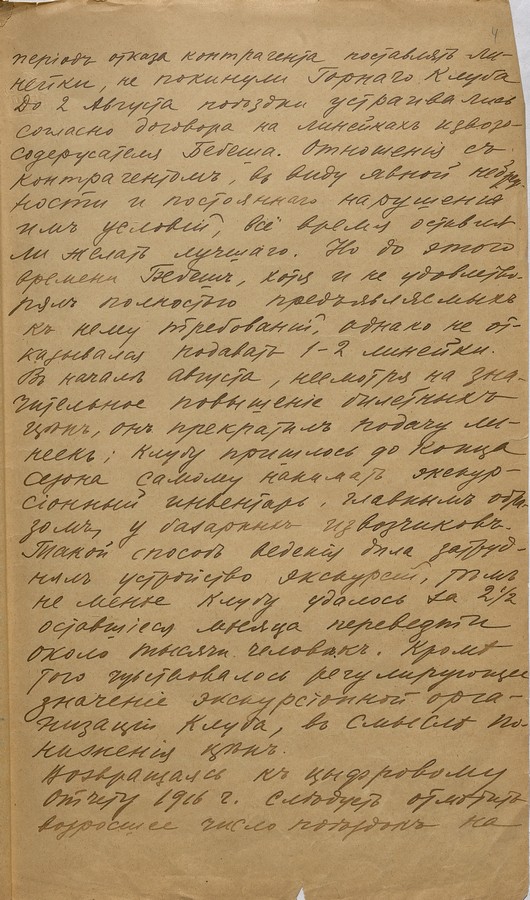 4
періодъ отказа контрагента поставлять ли-
нейки, не покинули Горнаго Клуба
До 2 Августа поѣздки устраивались
согласно договора на линейкахъ извозо-
содержателя Бебеша. Отношенія съ
контрагентомъ, въ виду явной небреж
ности и постояннаго нарушенія
имъ условій, всё время оставля
ли желать лучшаго. Но до этого
времени Бебешъ, хотя и не удовлетво-
рялъ полностью предъявляемыхъ
къ нему требованій, однако не от-
казывался подавать 1-2 линейки.
Въ началѣ августа, несмотря на зна-
чительное повышеніе билетныхъ
цѣнъ, онъ прекратилъ подачу ли-
неекъ; Клубу пришлось до конца
сезона самому нанимать экскур-
сіонный инвентарь, главнымъ обра-
зомъ, у базарныхъ извозчиковъ.
Такой способъ веденія дѣла затруд-
нялъ устройство экскурсій, тѣмъ
не менѣе Клубу удалось за 2 1/2
оставшіеся мѣсяца перевезти
около тысячи человѣкъ. Кромѣ
того чувствовалось регулирующее
значеніе экскурсіонной орга-
низаціи Клуба, въ смыслѣ по-
ниженія цѣнъ.
Возвращаясь къ цыфровому
отчету 1916 г. слѣдуетъ отмѣтить
возросшее число поѣздокъ на